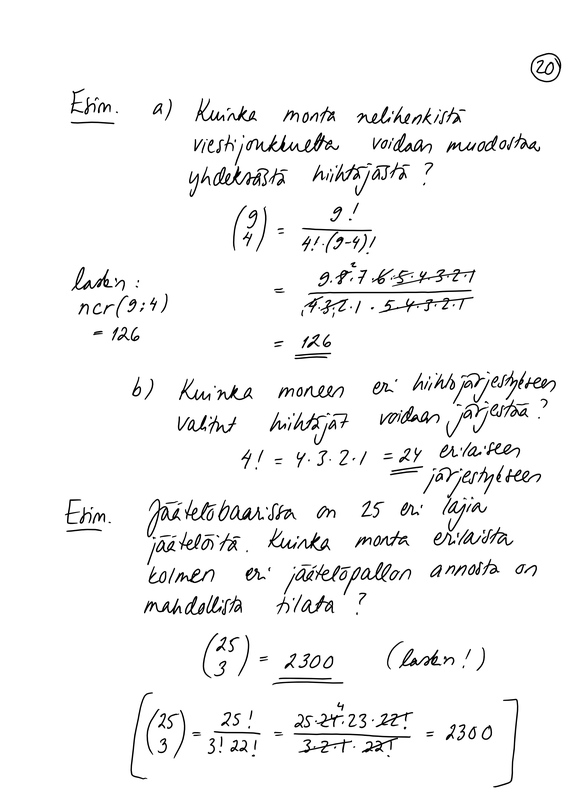 20
Esim. a) Kuinka monta nelihenkistä
viestijoukkuetta voidaan muodostaa
yhdeksästä hiihtäjästä ?
(9 4) = 9! / 4!·(9-4)!
laskin :
ncr(9;4)
= 126
= 9·8·7·6·5·4·3·2·1 / 4·3·2·1·5·4·3·2·1
= 126
b) Kuinka moneen eri hiihtojärjestykseen
valitut hiihtäjät voidaan järjestää ?
4! = 4·3·2·1 = 24 erilaiseen
järjestykseen
Esim. Jäätelöbaarissa on 25 eri lajia
jäätelöitä. Kuinka monta erilaista
kolmen eri jäätelöpallon annosta on
mahdollista tilata ?
(25 3) = 2300 (laskin !)
[(25 3) = 25! / 3! 22! = 25·24·23·22! / 3·2·1·22! = 2300]